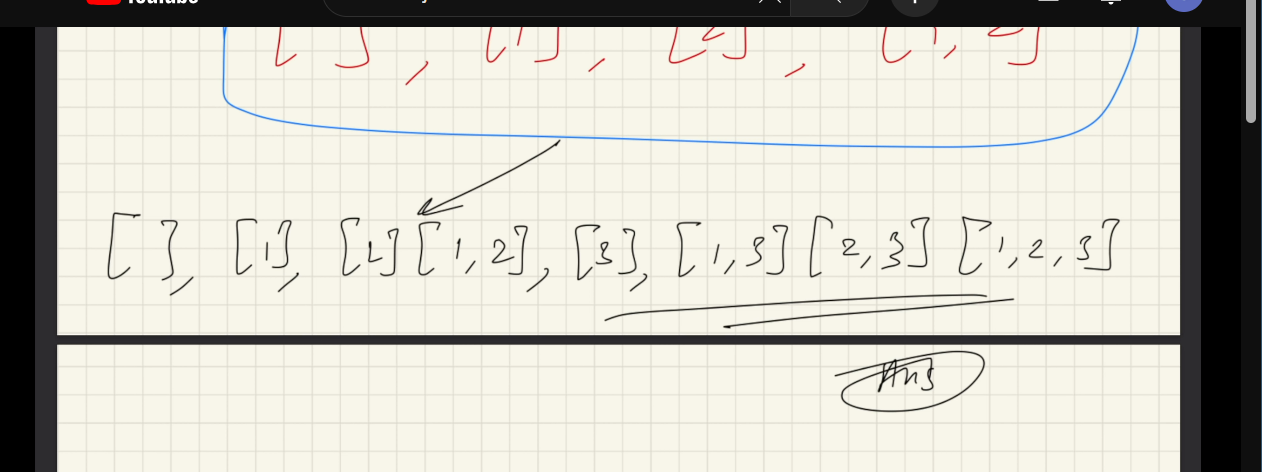 YouTube
[ ], [1], [2], [1, 2]
[ ], [1], [2] [1, 2], [3], [1, 3] [2, 3] [1, 2, 3]
Ans